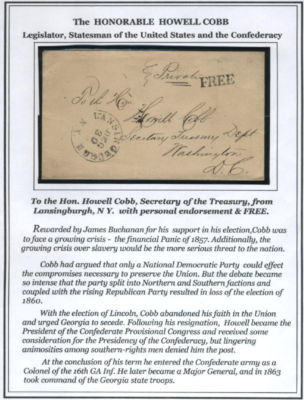 The HONORABLE HOWELL COBB
Legislator, Statesman of the United States and the Confederacy
& Private
FREE
To the Hon
Howell Cobb
Secretary Treasury Dept
Washington
D. C.
LANSINGBURGH N.Y.
DEC
30
To the Hon. Howell Cobb, Secretary of the Treasury, from
Lansingburgh, N Y. with personal endorsement & FREE.
Rewarded by James Buchanan for his support in his election,Cobb was
to face a growing crisis - the financial Panic of 1857. Additionally, the
growing crisis over slavery would be the more serious threat to the nation.
Cobb had argued that only a National Democratic Party could effect
the compromises necessary to preserve the Union. But the debate became
so intense that the party split into Northern and Southern factions and
coupled with the rising Republican Party resulted in loss of the election of
1860.
With the election of Lincoln, Cobb abandoned his faith in the Union
and urged Georgia to secede. Following his resignation, Howell became the
President of the Confederate Provisional Congress and received some
consideration for the Presidency of the Confederacy, but lingering
animosities among southern-rights men denied him the post.
At the conclusion of his term he entered the Confederate army as a
Colonel of the 16th GA Inf. He later became a Major General, and in 1863
took command of the Georgia state troops.